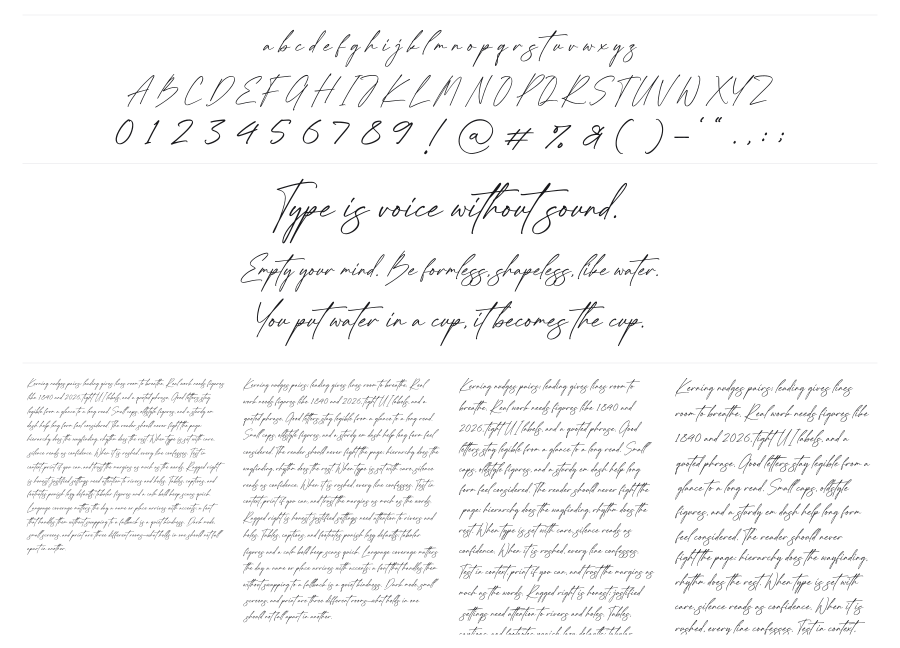 a b c d e f g h i j k l m n o p q r s t u v w x y z
A B C D E F G H I J K L M N O P Q R S T U V W X Y Z
0 1 2 3 4 5 6 7 8 9 ! @ # % & ( ) – ‘ “ . , : ;
Type is voice without sound.
Empty your mind. Be formless, shapeless, like water.
You put water in a cup, it becomes the cup.
Kerning nudges pairs; leading gives lines room to breathe. Real work needs figures
like 1840 and 2026, tight UI labels, and a quoted phrase. Good letters stay
legible from a glance to a long read. Small caps, oldstyle figures, and a sturdy en
dash help long form feel considered. The reader should never fight the page:
hierarchy does the wayfinding, rhythm does the rest. When type is set with care,
silence reads as confidence. When it is rushed, every line confesses. Test in
context, print if you can, and trust the margins as much as the words. Ragged right
is honest; justified settings need attention to rivers and holes. Tables, captions, and
footnotes punish lazy defaults; tabular figures and a calm bold keep scans quick.
Language coverage matters the day a name or place arrives with accents; a font
that handles them without swapping to a fallback is a quiet kindness. Dark mode,
small screens, and print are three different rooms—what holds in one should not fall
apart in another.
Kerning nudges pairs; leading gives lines room to breathe. Real
work needs figures like 1840 and 2026, tight UI labels, and a
quoted phrase. Good letters stay legible from a glance to a long read.
Small caps, oldstyle figures, and a sturdy en dash help long form feel
considered. The reader should never fight the page: hierarchy does the
wayfinding, rhythm does the rest. When type is set with care, silence
reads as confidence. When it is rushed, every line confesses. Test in
context, print if you can, and trust the margins as much as the words.
Ragged right is honest; justified settings need attention to rivers and
holes. Tables, captions, and footnotes punish lazy defaults; tabular
figures and a calm bold keep scans quick. Language coverage matters
the day a name or place arrives with accents; a font that handles them
without swapping to a fallback is a quiet kindness. Dark mode, small
screens, and print are three different rooms—what holds in one
should not fall apart in another.
Kerning nudges pairs; leading gives lines room to
breathe. Real work needs figures like 1840 and
2026, tight UI labels, and a quoted phrase. Good
letters stay legible from a glance to a long read. Small
caps, oldstyle figures, and a sturdy en dash help long
form feel considered. The reader should never fight the
page: hierarchy does the wayfinding, rhythm does the
rest. When type is set with care, silence reads as
confidence. When it is rushed, every line confesses.
Test in context, print if you can, and trust the margins as
much as the words. Ragged right is honest; justified
settings need attention to rivers and holes. Tables,
captions, and footnotes punish lazy defaults; tabular
Kerning nudges pairs; leading gives lines
room to breathe. Real work needs figures like
1840 and 2026, tight UI labels, and a
quoted phrase. Good letters stay legible from a
glance to a long read. Small caps, oldstyle
figures, and a sturdy en dash help long form
feel considered. The reader should never
fight the page: hierarchy does the wayfinding,
rhythm does the rest. When type is set with
care, silence reads as confidence. When it is
rushed, every line confesses. Test in context,